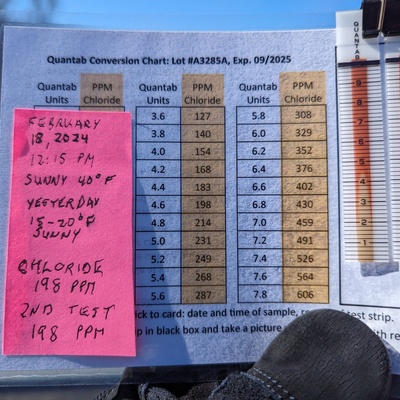 Quantab Conversion Chart: Lot #A3285A, Exp. 09/2025
Quantab Units PPM Chloride Quantab Units PPM Chloride Quantab Units PPM Chloride
3.6 127 5.8 308
3.8 140 6.0 329
4.0 154 6.2 352
4.2 168 6.4 376
4.4 183 6.6 402
4.6 198 6.8 430
4.8 214 7.0 459
5.0 231 7.2 491
5.2 249 7.4 526
5.4 268 7.6 564
5.6 287 7.8 606
FEBRUARY
18, 2024
12:15 PM
SUNNY 40°F
YESTERDAY
15-20°F
SUNNY
CHLORIDE
198 PPM
2ND TEST
198 PPM
ick to card: date and time of sample, test strip.
ip in black box and take a picture with re
QUANTAB
9
8
7
6
5
4
3
2
1